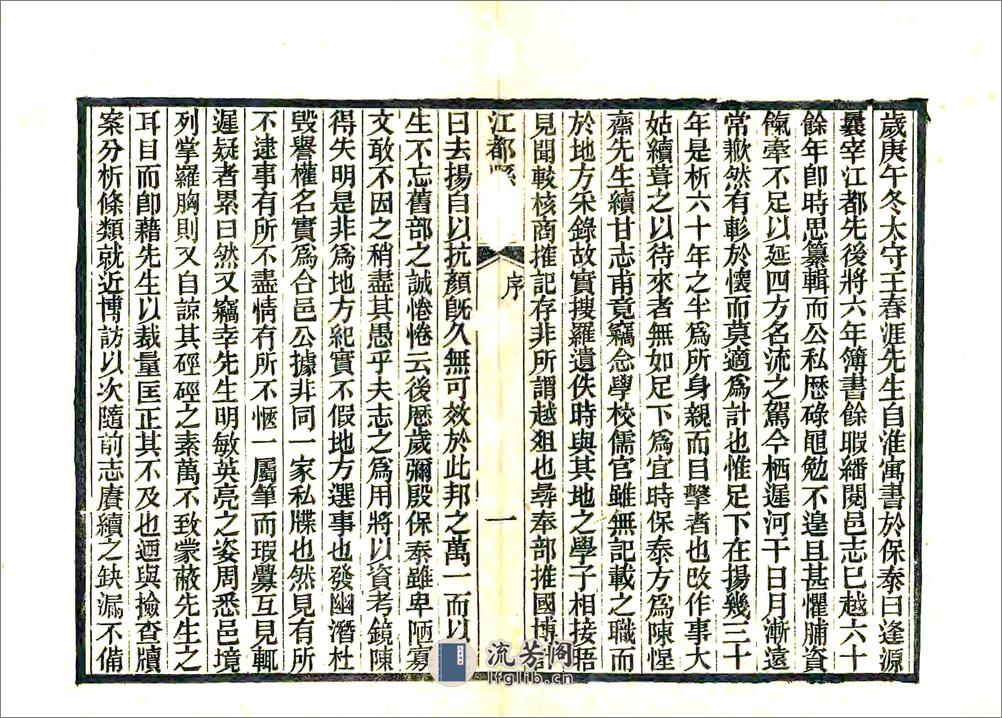 歲庚午冬太守王春涯先生自淮寓書於保泰曰逢源
曩宰江都先後將六年簿書餘暇繙閱邑志已越六十
餘年卽時思纂輯而公私歷碌黽勉不遑且甚懼脯資
餼牽不足以延四方名流之駕今栖遲河干日月漸遠
常歉然有軫於懷而莫適爲計也惟足下在揚幾三十
年是析六十年之半爲所身親而目擊者也改作事大
姑續葺之以待來者無如足下爲宜時保泰方爲陳惺
齋先生續甘志甫竟竊念學校儒官雖無記載之職而
於地方宋錄故實搜羅遺佚時與其地之學子相接晤
見聞較核商搉記存非所謂越俎也尋奉部推國博
江都縣
序
一
曰去揚自以抗顏旣久無可效於此邦之萬一而以
生不忘舊部之誠惓惓云後歷歲彌殷保泰雖卑陋寡
文敢不因之稍盡其愚乎夫志之爲用將以資考鏡陳
得失明是非爲地方紀實不假地方選事也發幽潛杜
毀譽權名實爲合邑公據非同一家私牒也然見有所
不逮事有所不盡情有所不愜一屬筆而瑕釁互見輒
遲疑者累日然又竊幸先生明敏英亮之姿周悉邑境
列掌羅胸則又自諒其硜硜之素萬不致蒙蔽先生之
耳目而卽藉先生以裁量匡正其不及也迺與撿查牘
案分析條類就近博訪以次隨前志賡續之缺漏不備
流芳阁
lfglib.cn